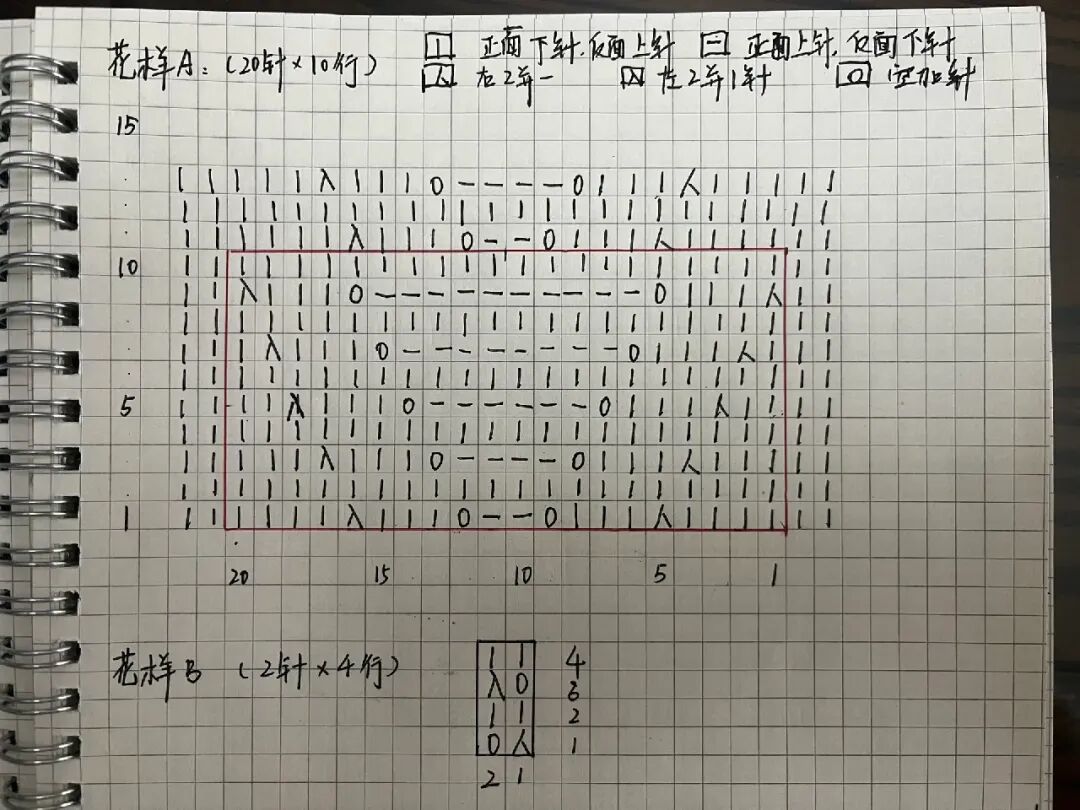 花样A:(20针×10行) | 正面下针.反面上针 — 正面上针,反面下针
人 右2并一 入 左2并1针 O 空加针
15
| | | | | λ | | | O - - - - O | | | 人 | | | | |
| | | | | | | | | | | | | | | | | | | | | | | |
| | | | | | λ | | | O - - O | | | 人 | | | | | |
10 | | | | | | | | | | | | | | | | | | | | | | | |
| | λ | | | O - - - - - - - - - - O | | | 人 | |
| | | | | | | | | | | | | | | | | | | | | | | |
| | | λ | | | O - - - - - - - - O | | | 人 | | |
| | | | | | | | | | | | | | | | | | | | | | | |
5 | | | | λ | | | O - - - - - - O | | | 人 | | | |
| | | | | | | | | | | | | | | | | | | | | | | |
| | | | | λ | | | O - - - - O | | | 人 | | | | |
| | | | | | | | | | | | | | | | | | | | | | | |
1 | | | | | | λ | | | O - - O | | | 人 | | | | | |
20 15 10 5 1
花样B (2针×4行)
| | 4
λ O 3
| | 2
O 人 1
2 1